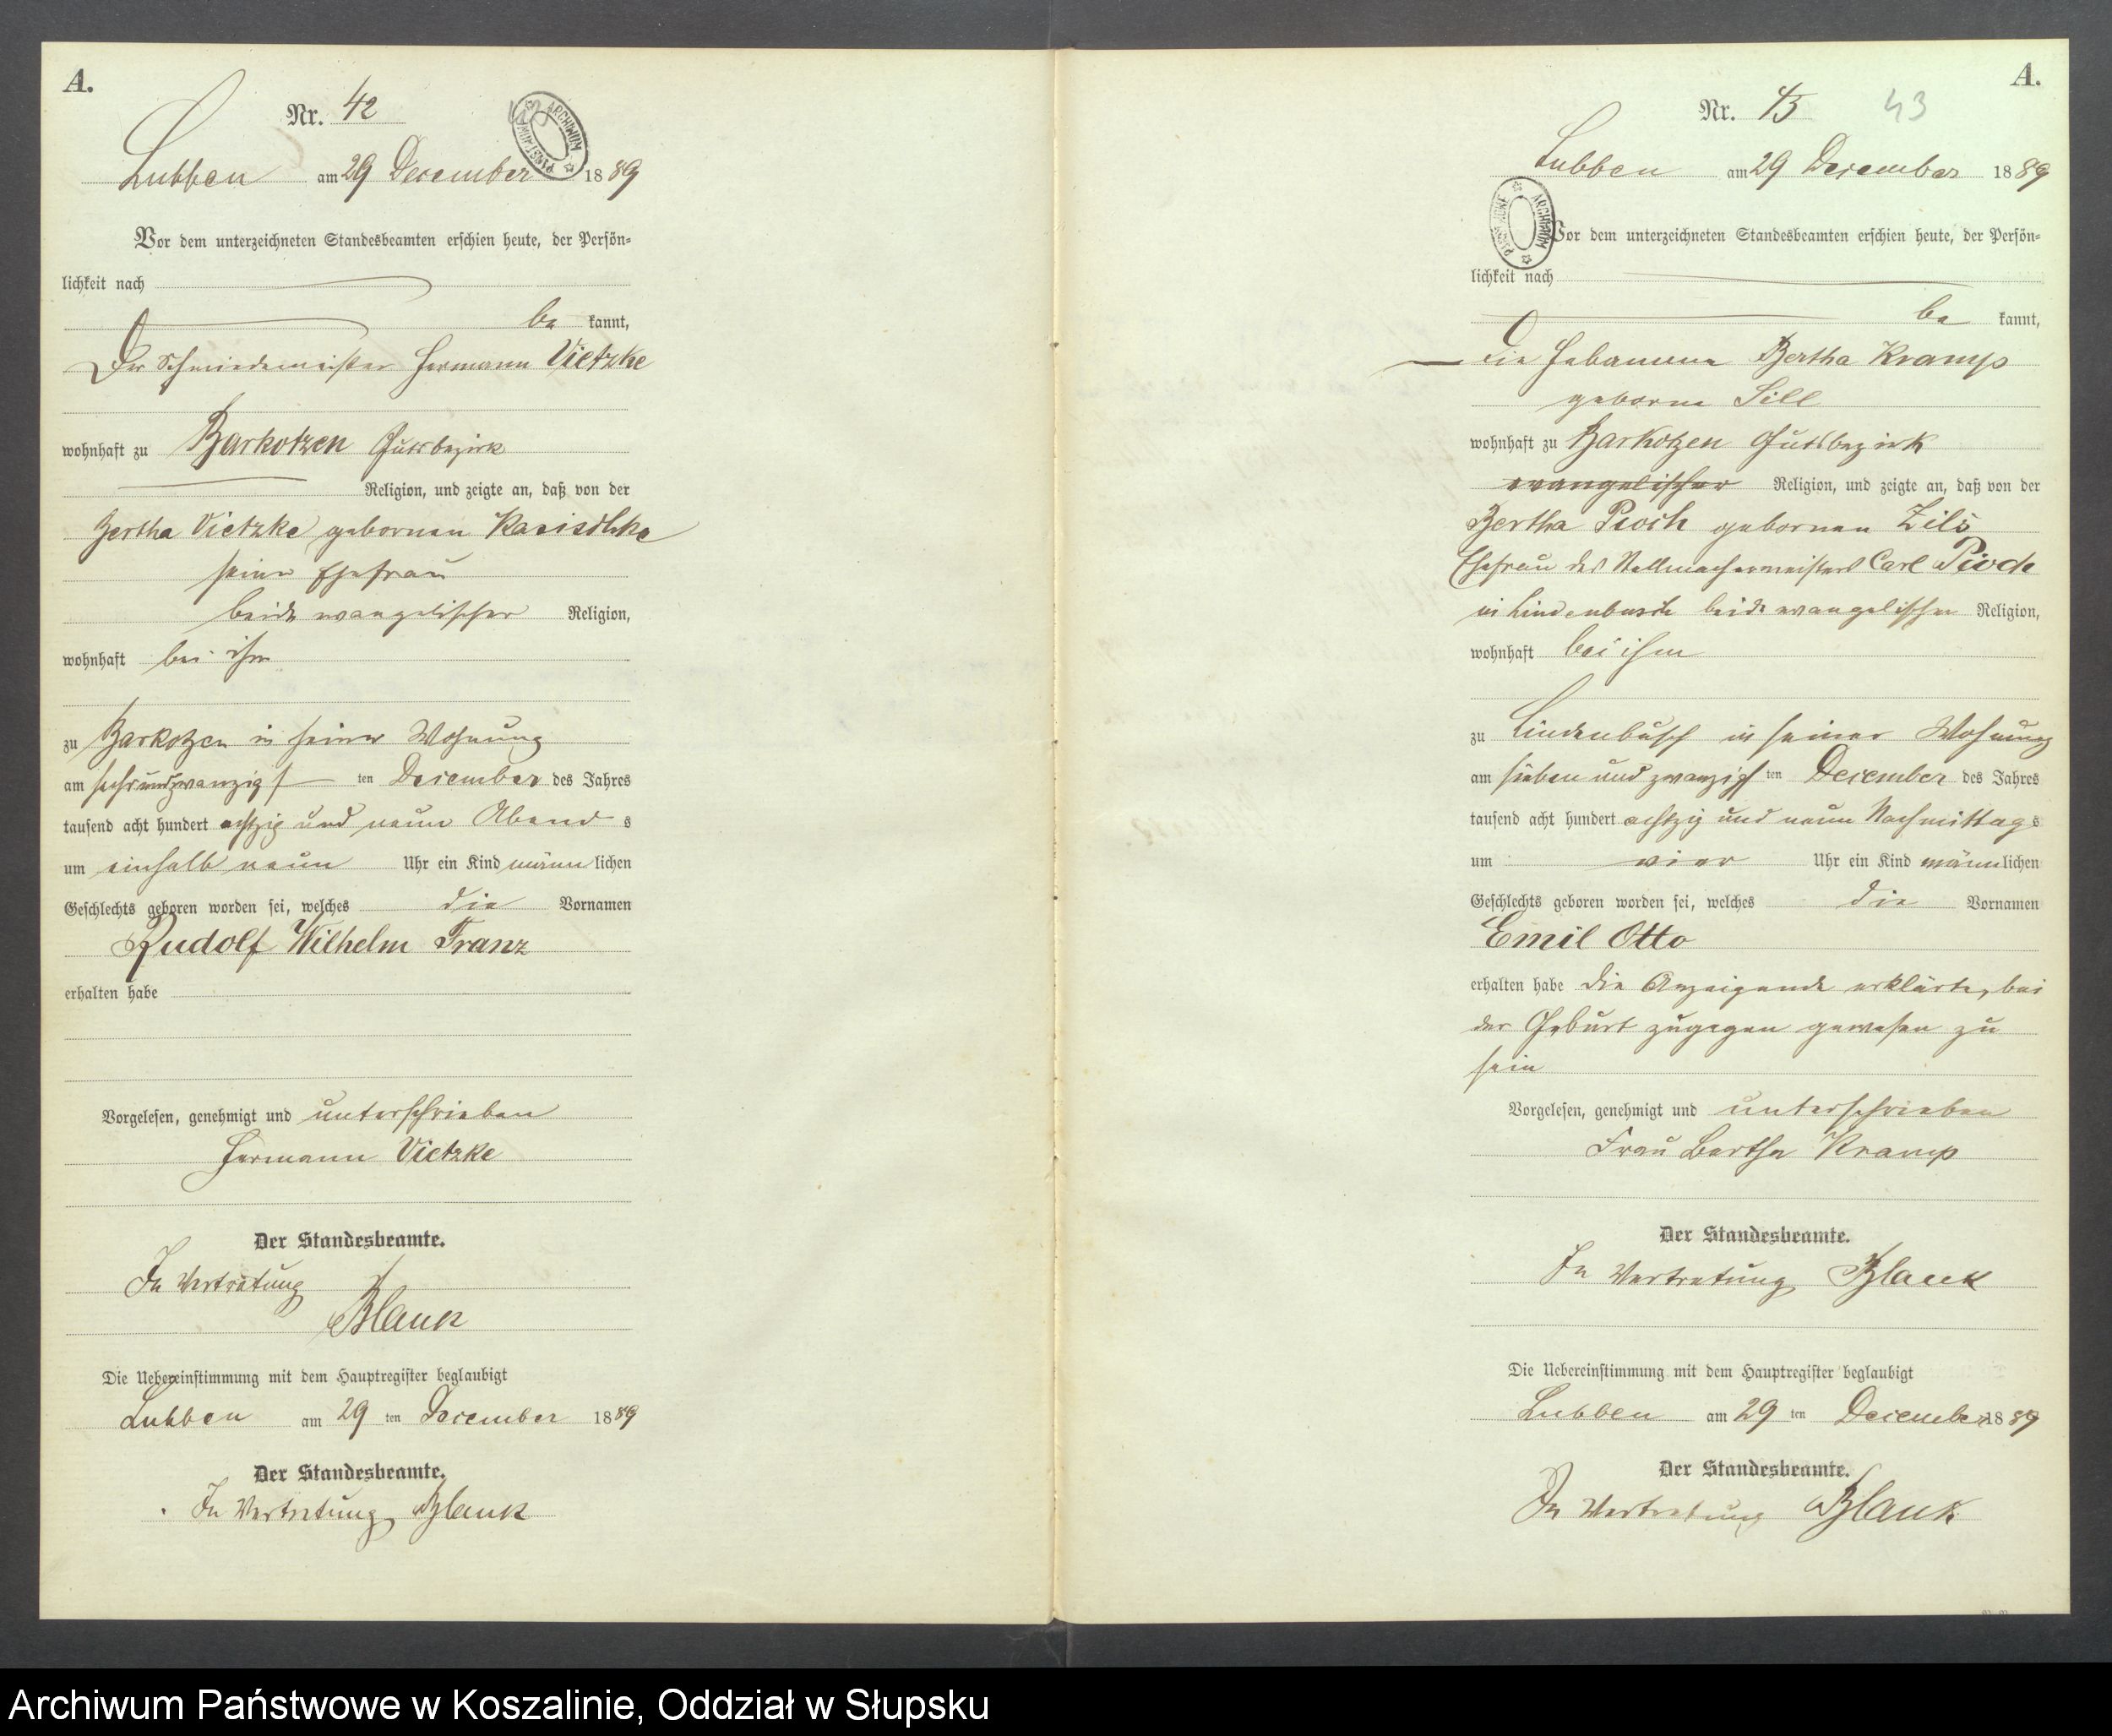 A.
Nr. 42
Lubben am 29 December 1889
Vor dem unterzeichneten Standesbeamten erschien heute, der Persön-
lichkeit nach
be kannt,
Der Schmiedemeister Hermann Vietzke
wohnhaft zu Barkotzen Gutsbezirk
Religion, und zeigte an, daß von der
Bertha Vietzke gebornen
seine Ehefrau
beide evangelischer Religion,
wohnhaft bei ihm
zu Barkotzen in seiner Wohnung
am sechsundzwanzigst ten December des Jahres
tausend acht hundert achtzig und neun Abend s
um einhalb neun Uhr ein Kind männ lichen
Geschlechts geboren worden sei, welches die Vornamen
Rudolf Wilhelm Franz
erhalten habe
Vorgelesen, genehmigt und unterschrieben
Hermann Vietzke
Der Standesbeamte.
In Vertretung
Blank
Die Uebereinstimmung mit dem Hauptregister beglaubigt
Lubben am 29 ten December 1889
Der Standesbeamte.
In Vertretung Blank
A.
Nr. 43
Lubben am 29 December 1889
Vor dem unterzeichneten Standesbeamten erschien heute, der Persön-
lichkeit nach
be kannt,
die Hebamme Bertha Kramp
geborne Sill
wohnhaft zu Barkotzen Gutsbezirk
evangelischer Religion, und zeigte an, daß von der
Bertha gebornen
Ehefrau des Stellmachermeisters Carl
in Lindenbusch beide evangelischer Religion,
wohnhaft bei ihm
zu Lindenbusch in seiner Wohnung
am sieben und zwanzigst ten December des Jahres
tausend acht hundert achtzig und neun Nachmittag s
um vier Uhr ein Kind männlichen
Geschlechts geboren worden sei, welches die Vornamen
Emil Otto
erhalten habe die Anzeigende erklärte, bei
der Geburt zugegen gewesen zu
sein
Vorgelesen, genehmigt und unterschrieben
Frau Bertha Kramp
Der Standesbeamte.
In Vertretung Blank
Die Uebereinstimmung mit dem Hauptregister beglaubigt
Lubben am 29 ten December 1889
Der Standesbeamte.
In Vertretung Blank
43
Archiwum Państwowe w Koszalinie, Oddział w Słupsku